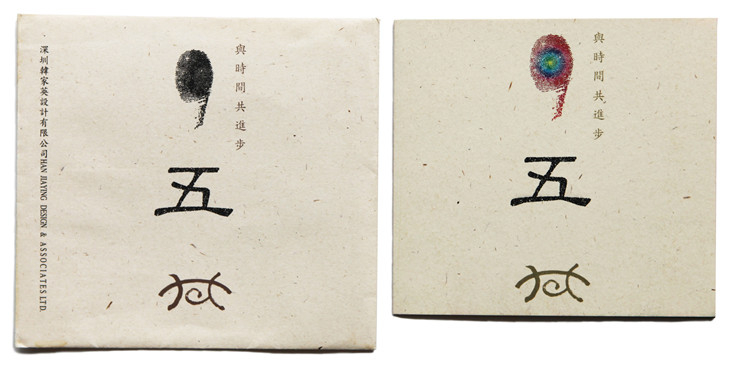 深圳韓家英設計有限公司HAN JIAYING DESIGN & ASSOCIATES LTD.
與時間共進步
9
五
與時間共進步
9
五